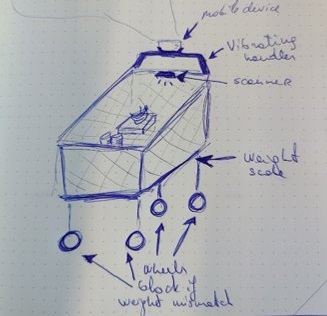 mobile device
Vibrating
handles
scanner
weight
scale
wheels
block if
weight mismatch